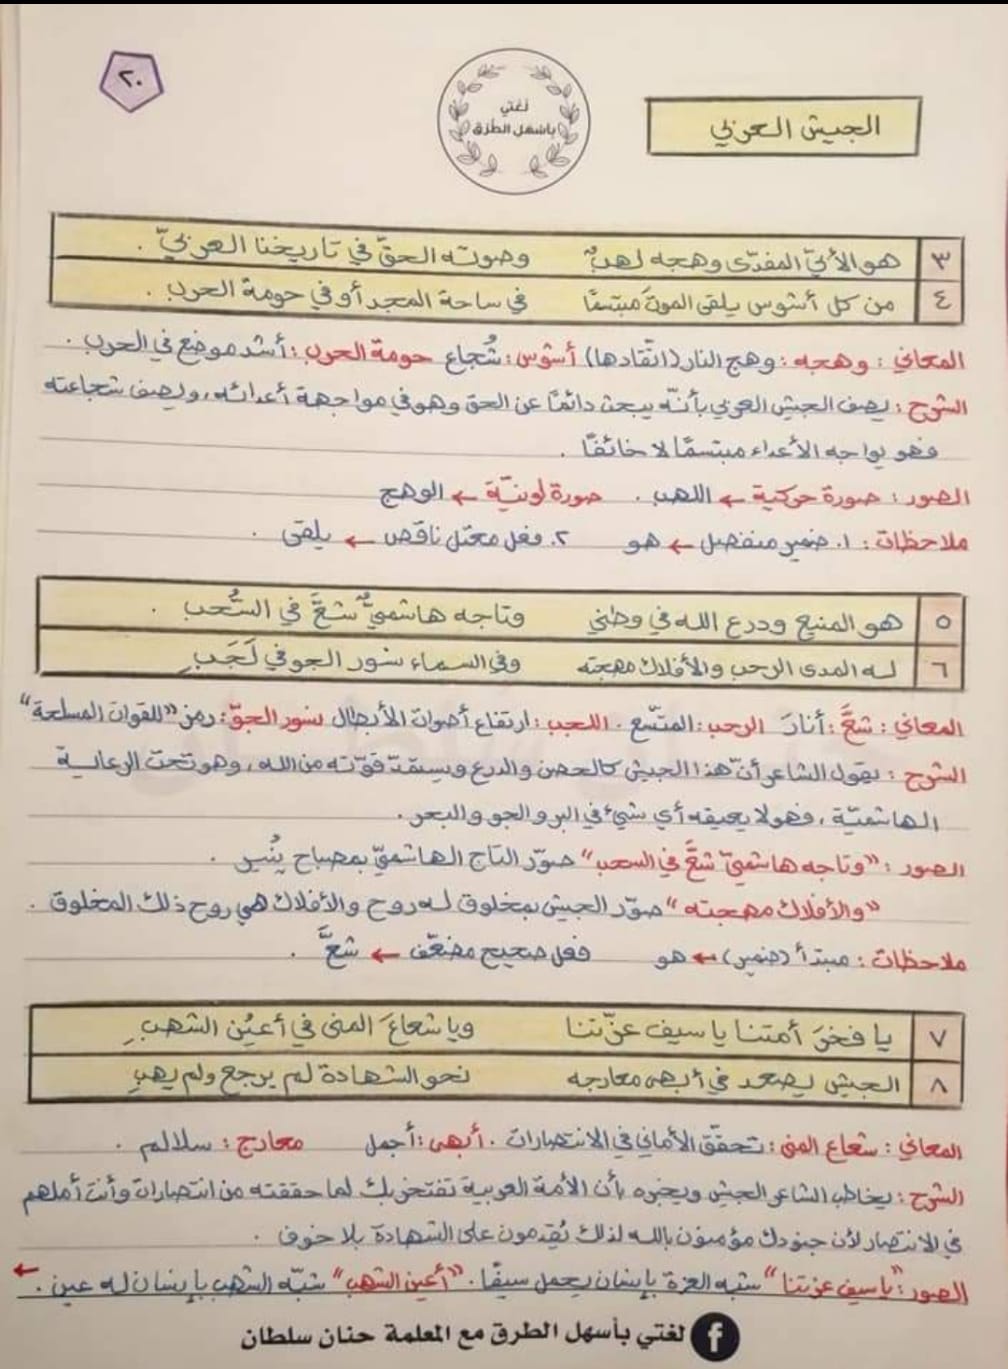 ٢٠
لغتي
بأسهل الطرق
الجيش العربي
٣ هو الأبيّ المفدّى وهجه لهبٌ وصوته الحقّ في تاريخنا العربيّ .
٤ من كل أشوس يلقى الموتَ مبتسمًا في ساحة المجد أو في حومة الحرب .
المعاني : وهجه : وهج النار (اتّقادها) أشوس : شُجاع حومة الحرب : أشد موضع في الحرب .
الشرح : يصف الجيش العربي بأنّه يبحث دائمًا عن الحق وهو في مواجهة أعدائه ، ويصف شجاعته
فهو يواجه الأعداء مبتسمًا لا خائفًا .
الصور : صورة حركية ← اللهب . صورة لونيّة ← الوهج
ملاحظات : ١. ضمير منفصل ← هو ٢. فعل معتل ناقص ← يلقى .
٥ هو المنيع ودرع الله في وطني وتاجه هاشميٌّ شعَّ في السُّحب .
٦ له المدى الرحب والأفلاك مهجته وفي السماء نسور الجو في لَجَبِ
المعاني : شعَّ : أنارَ الرحب : المتّسع . اللجب : ارتفاع أصوات الأبطال نسور الجوّ : رمز "للقوات المسلحة"
الشرح : يقول الشاعر أنّ هذا الجيش كالحصن والدرع ويستمدّ قوّته من الله ، وهو تحت الرعاية
الهاشميّة ، فهو لا يعيقه أي شيء في البر والجو والبحر .
الصور : "وتاجه هاشميّ شعَّ في السحب" صوّر التاج الهاشميّ بمصباح يُنير .
"والأفلاك مهجته" صوّر الجيش بمخلوق له روح والأفلاك هي روح ذلك المخلوق .
ملاحظات : مبتدأ (ضمير) ← هو فعل صحيح مضعّف ← شعَّ .
٧ يا فخرَ أمتنا يا سيف عزّتنا ويا شعاعَ المنى في أعيُن الشهبِ
٨ الجيش يصعد في أبهى معارجه نحو الشهادة لم يرجع ولم يهبِ
المعاني : شعاع المنى : تحقّق الأماني في الانتصارات . أبهى : أجمل معارج : سلالم .
الشرح : يخاطب الشاعر الجيش ويخبره بأن الأمة العربية تفتخر بك لما حققته من انتصارات وأنت أملهم
في الانتصار لأن جنودك مؤمنون بالله لذلك يُقدمون على الشهادة بلا خوف .
الصور : "يا سيف عزتنا" شبه العزة بإنسان يحمل سيفًا . "أعين الشهب" شبّه الشهب بإنسان له عين .
لغتي بأسهل الطرق مع المعلمة حنان سلطان